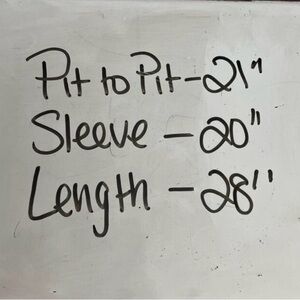 Pit to Pit-21"
Sleeve - 20"
Length - 28"